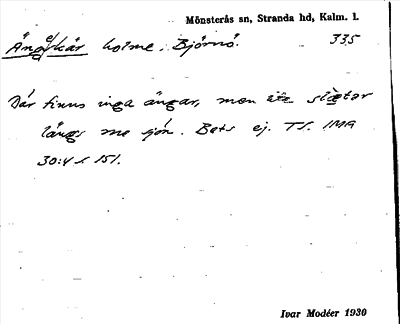 Mönsterås sn, Stranda hd, Kalm. l.
Ängskär holme, Björnö. 335
Där finns inga ängar, men slåtter
längs me sjön. Bets ej. TS. IMG
30:4 s. 151.
Ivar Modéer 1930